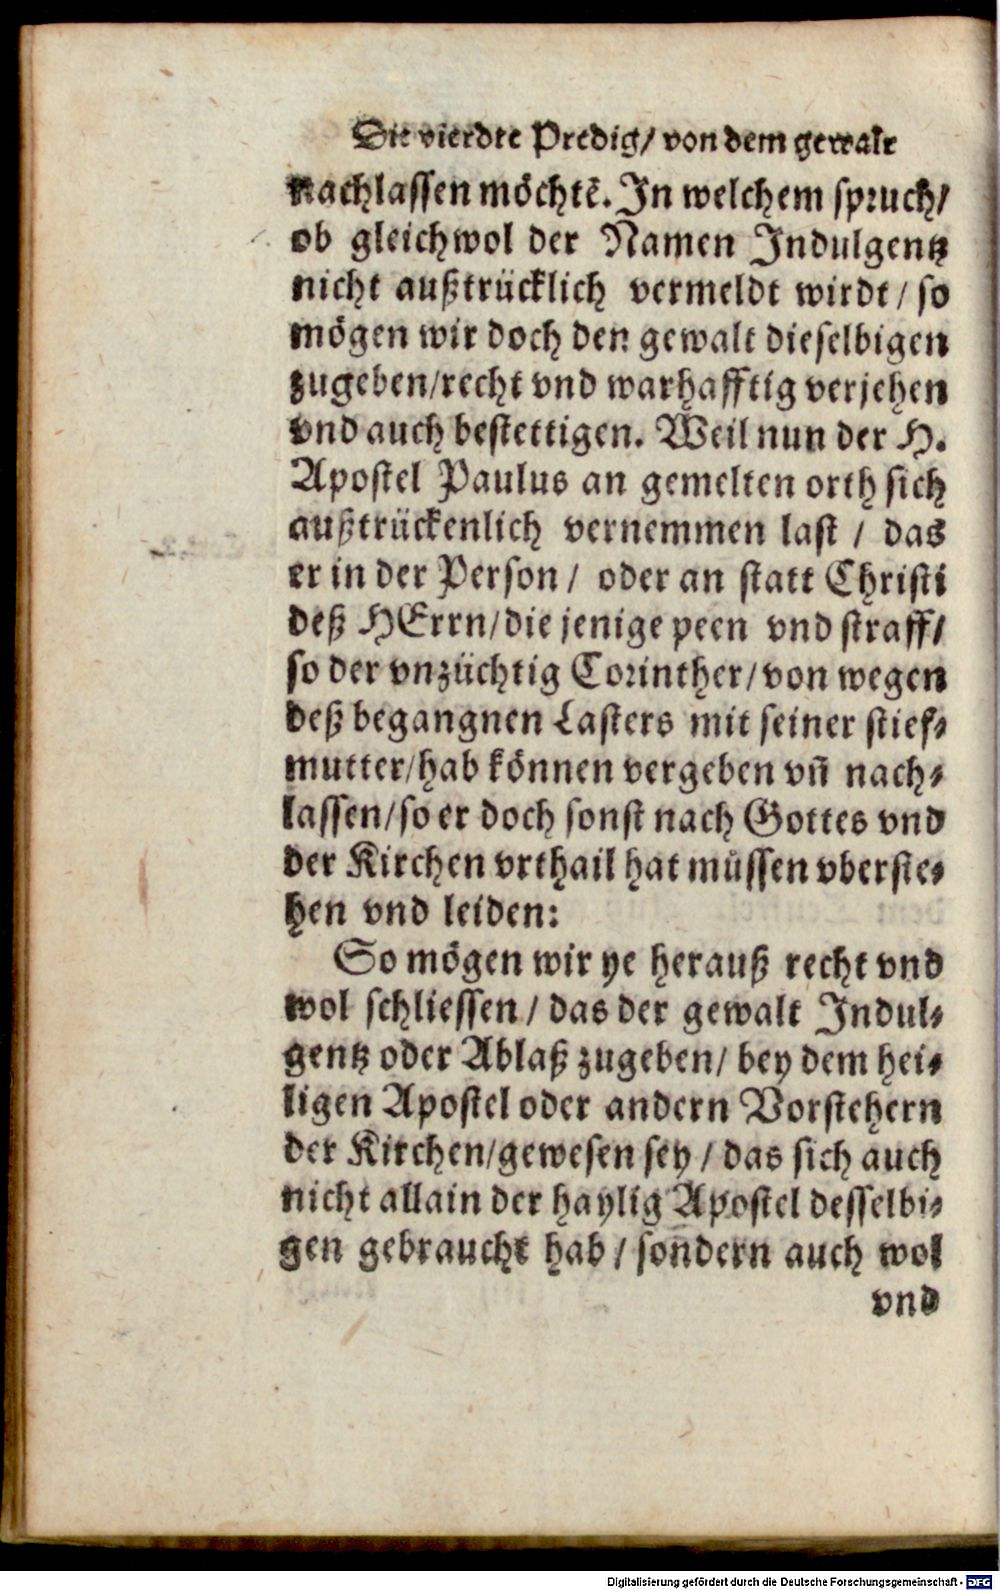 Die vierdte Predig/ von dem gewalt
nachlassen möchtē. In welchem spruch/
ob gleichwol der Namen Indulgentz
nicht außtrücklich vermeldt wirdt / so
mögen wir doch den gewalt dieselbigen
zugeben/recht vnd warhafftig verjehen
vnd auch bestettigen. Weil nun der H.
Apostel Paulus an gemelten orth sich
außtrückenlich vernemmen last / das
er in der Person / oder an statt Christi
deß HErrn/die jenige peen vnd straff/
so der vnzüchtig Corinther/von wegen
deß begangnen Lasters mit seiner stief-
mutter/hab können vergeben vñ nach-
lassen/so er doch sonst nach Gottes vnd
der Kirchen vrthail hat müssen vberste-
hen vnd leiden:
So mögen wir ye herauß recht vnd
wol schliessen / das der gewalt Indul-
gentz oder Ablaß zugeben/ bey dem hei-
ligen Apostel oder andern Vorstehern
der Kirchen/gewesen sey / das sich auch
nicht allain der haylig Apostel desselbi-
gen gebraucht hab / sondern auch wol
vnd
Digitalisierung gefördert durch die Deutsche Forschungsgemeinschaft - DFG